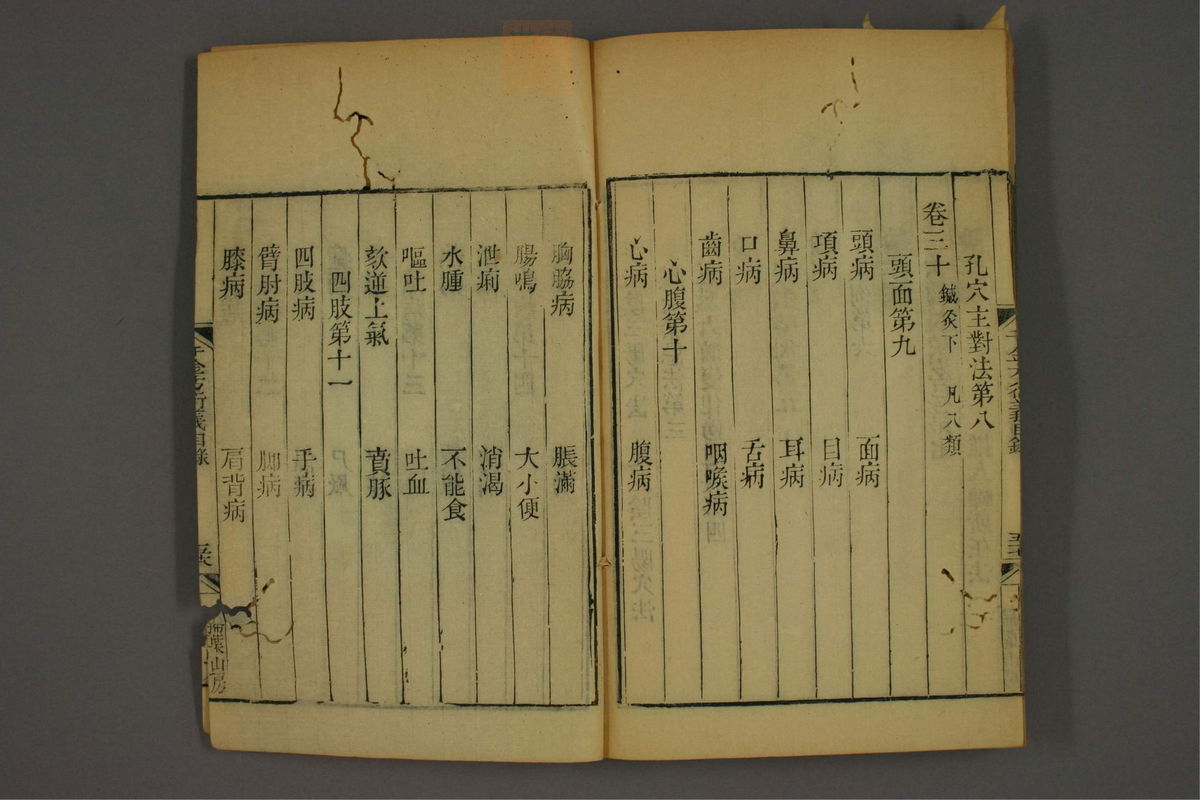 孔穴主對法第八
卷三十 鍼灸下 凡八類
頭面第九
頭病 面病
項病 目病
鼻病 耳病
口病 舌病
齒病 咽喉病
心腹第十
心病 腹病
胸脇病 脹滿
腸鳴 大小便
泄痢 消渴
水腫 不能食
嘔吐 吐血
欬逆上氣 賁豚
四肢第十一
四肢病 手病
臂肘病 脚病
膝病 肩背病
千金方衍義目錄
掃葉山房